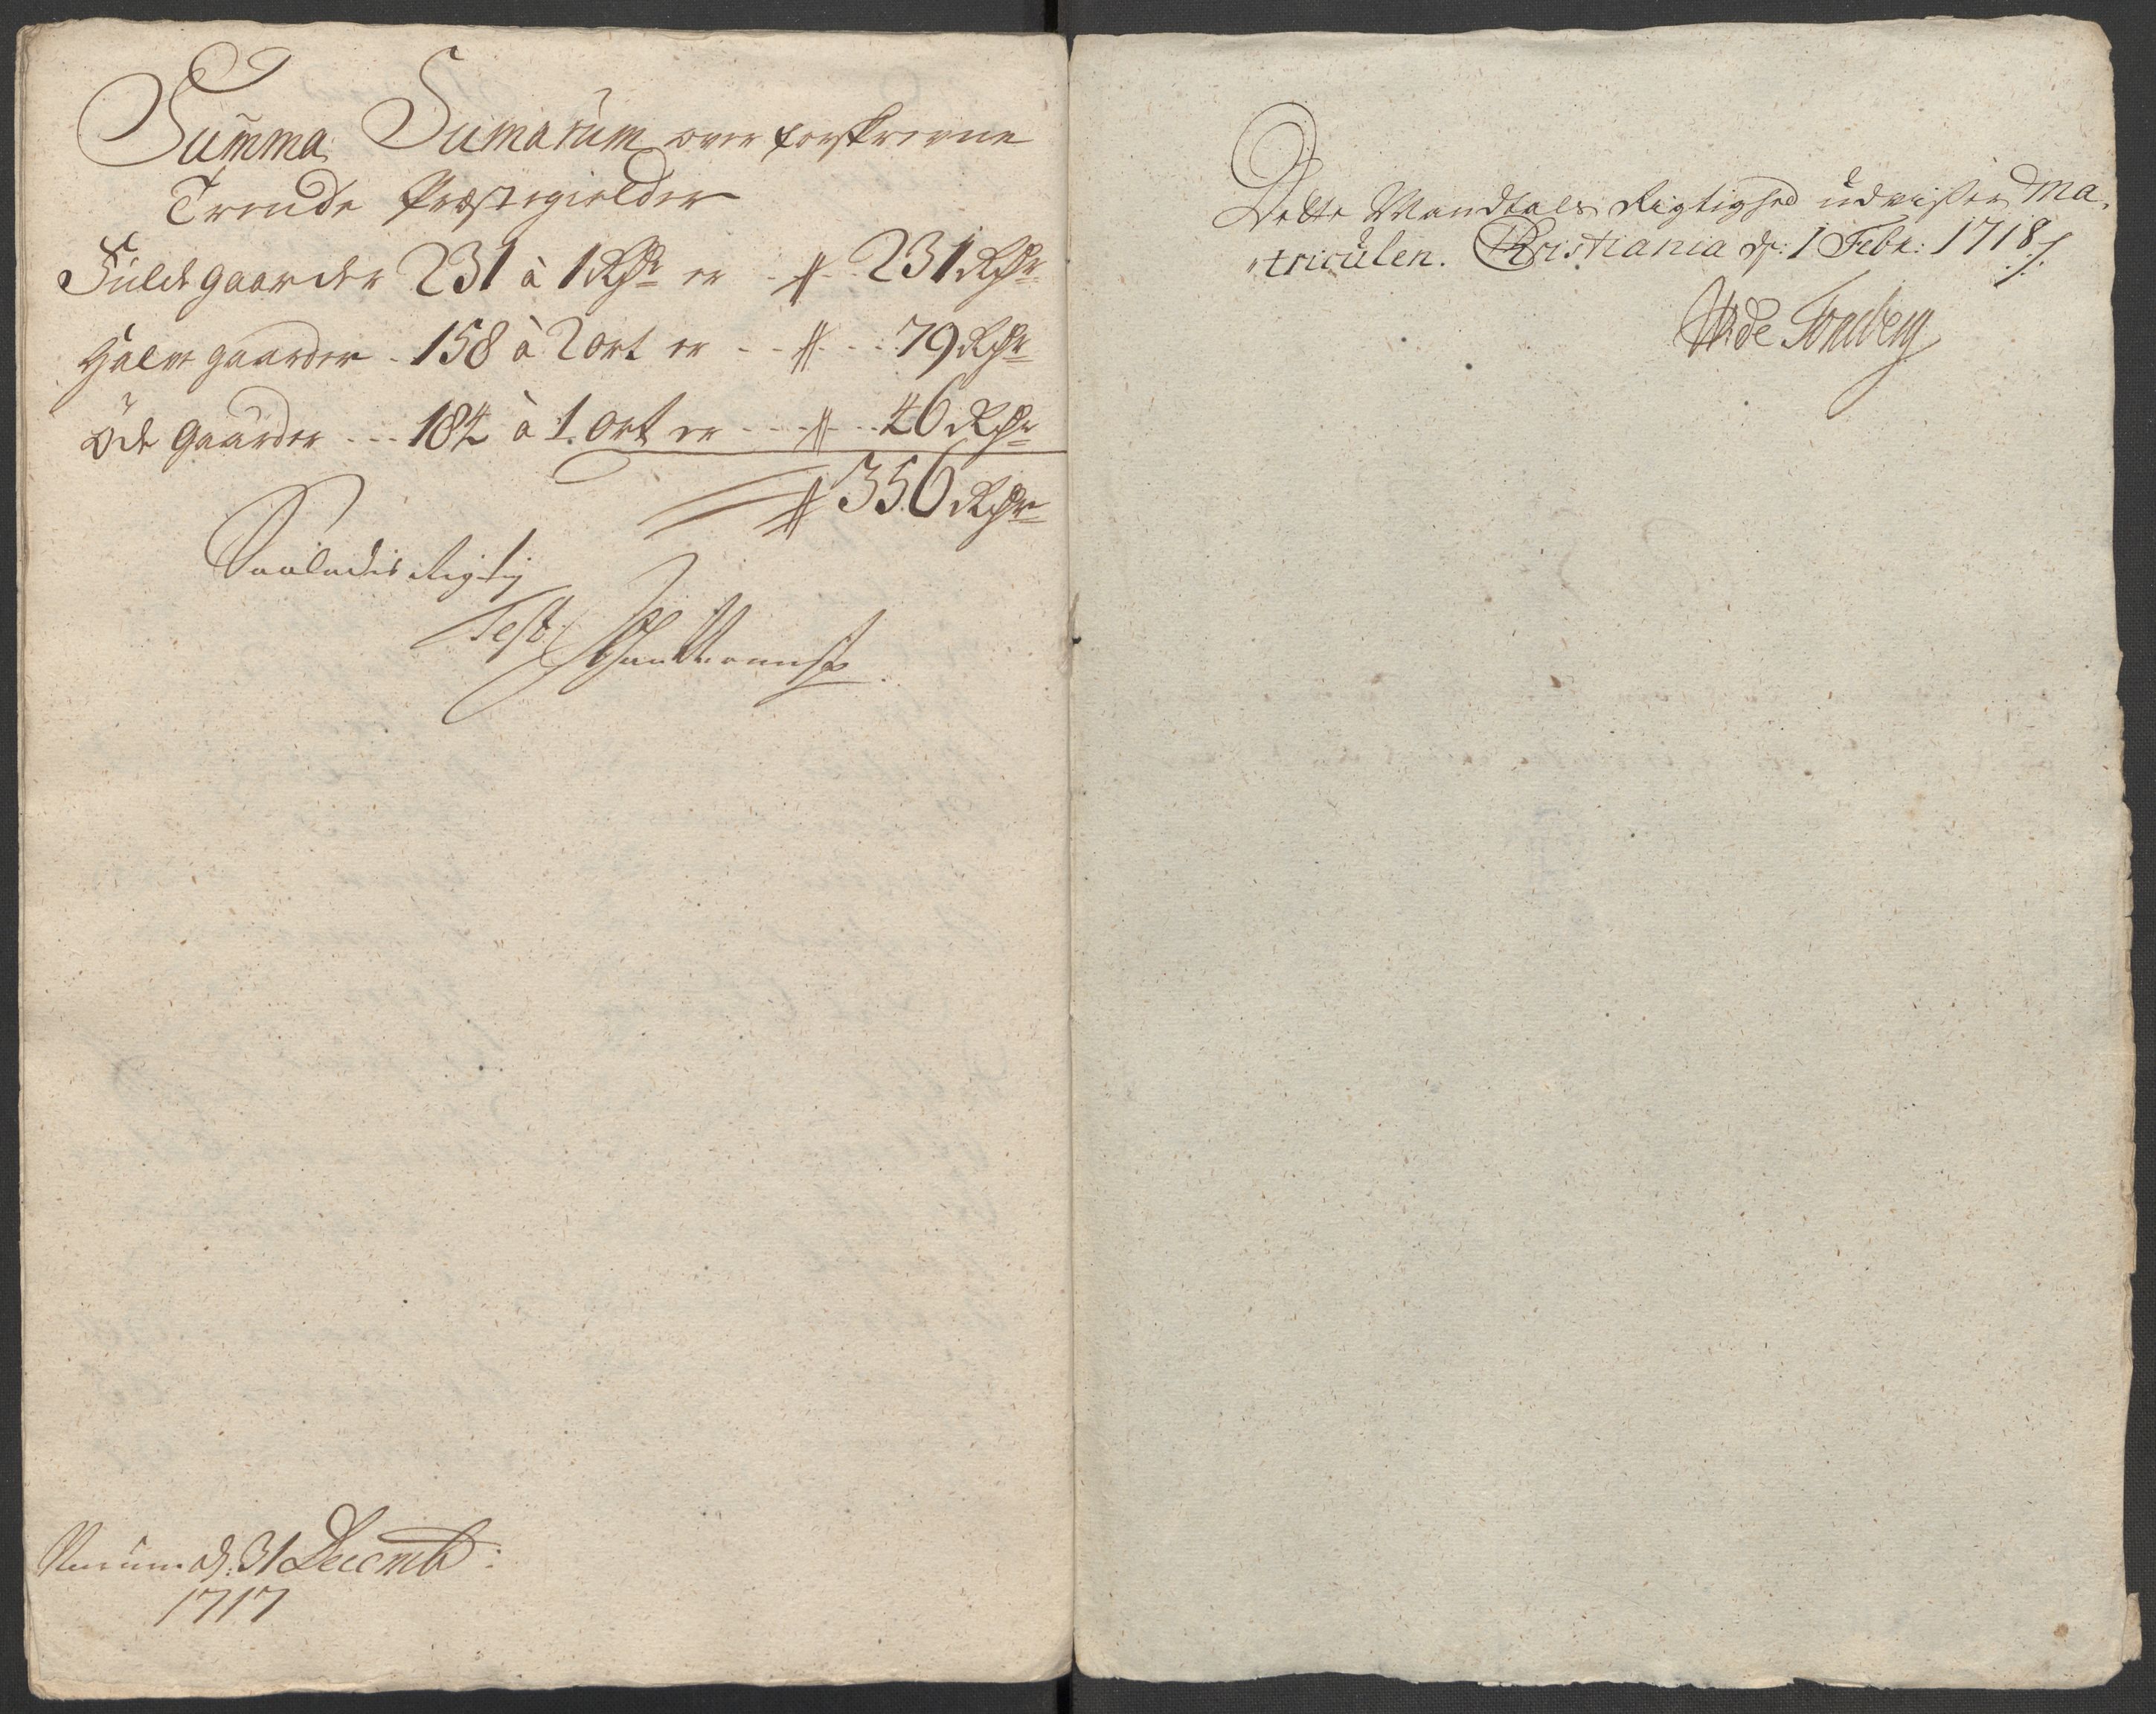 Summa Sumarum over forskrevne
Trende Præstegielder
Fulde gaarder 231 à 1 Rdr er - - 231 Rdr
Halve gaarder - 158 à 2 ort er - - - 79 Rdr
Øde Gaarder - - - 184 à 1 ort er - - - 46 Rdr
356 Rdr
Saaledis Rigtig
Test
d: 31 Decemb:
1717
Dette Mandtals Rigtighed udviser Ma-
triculen. Christiania d: 1 Febr: 1718 /:
de Tonsberg